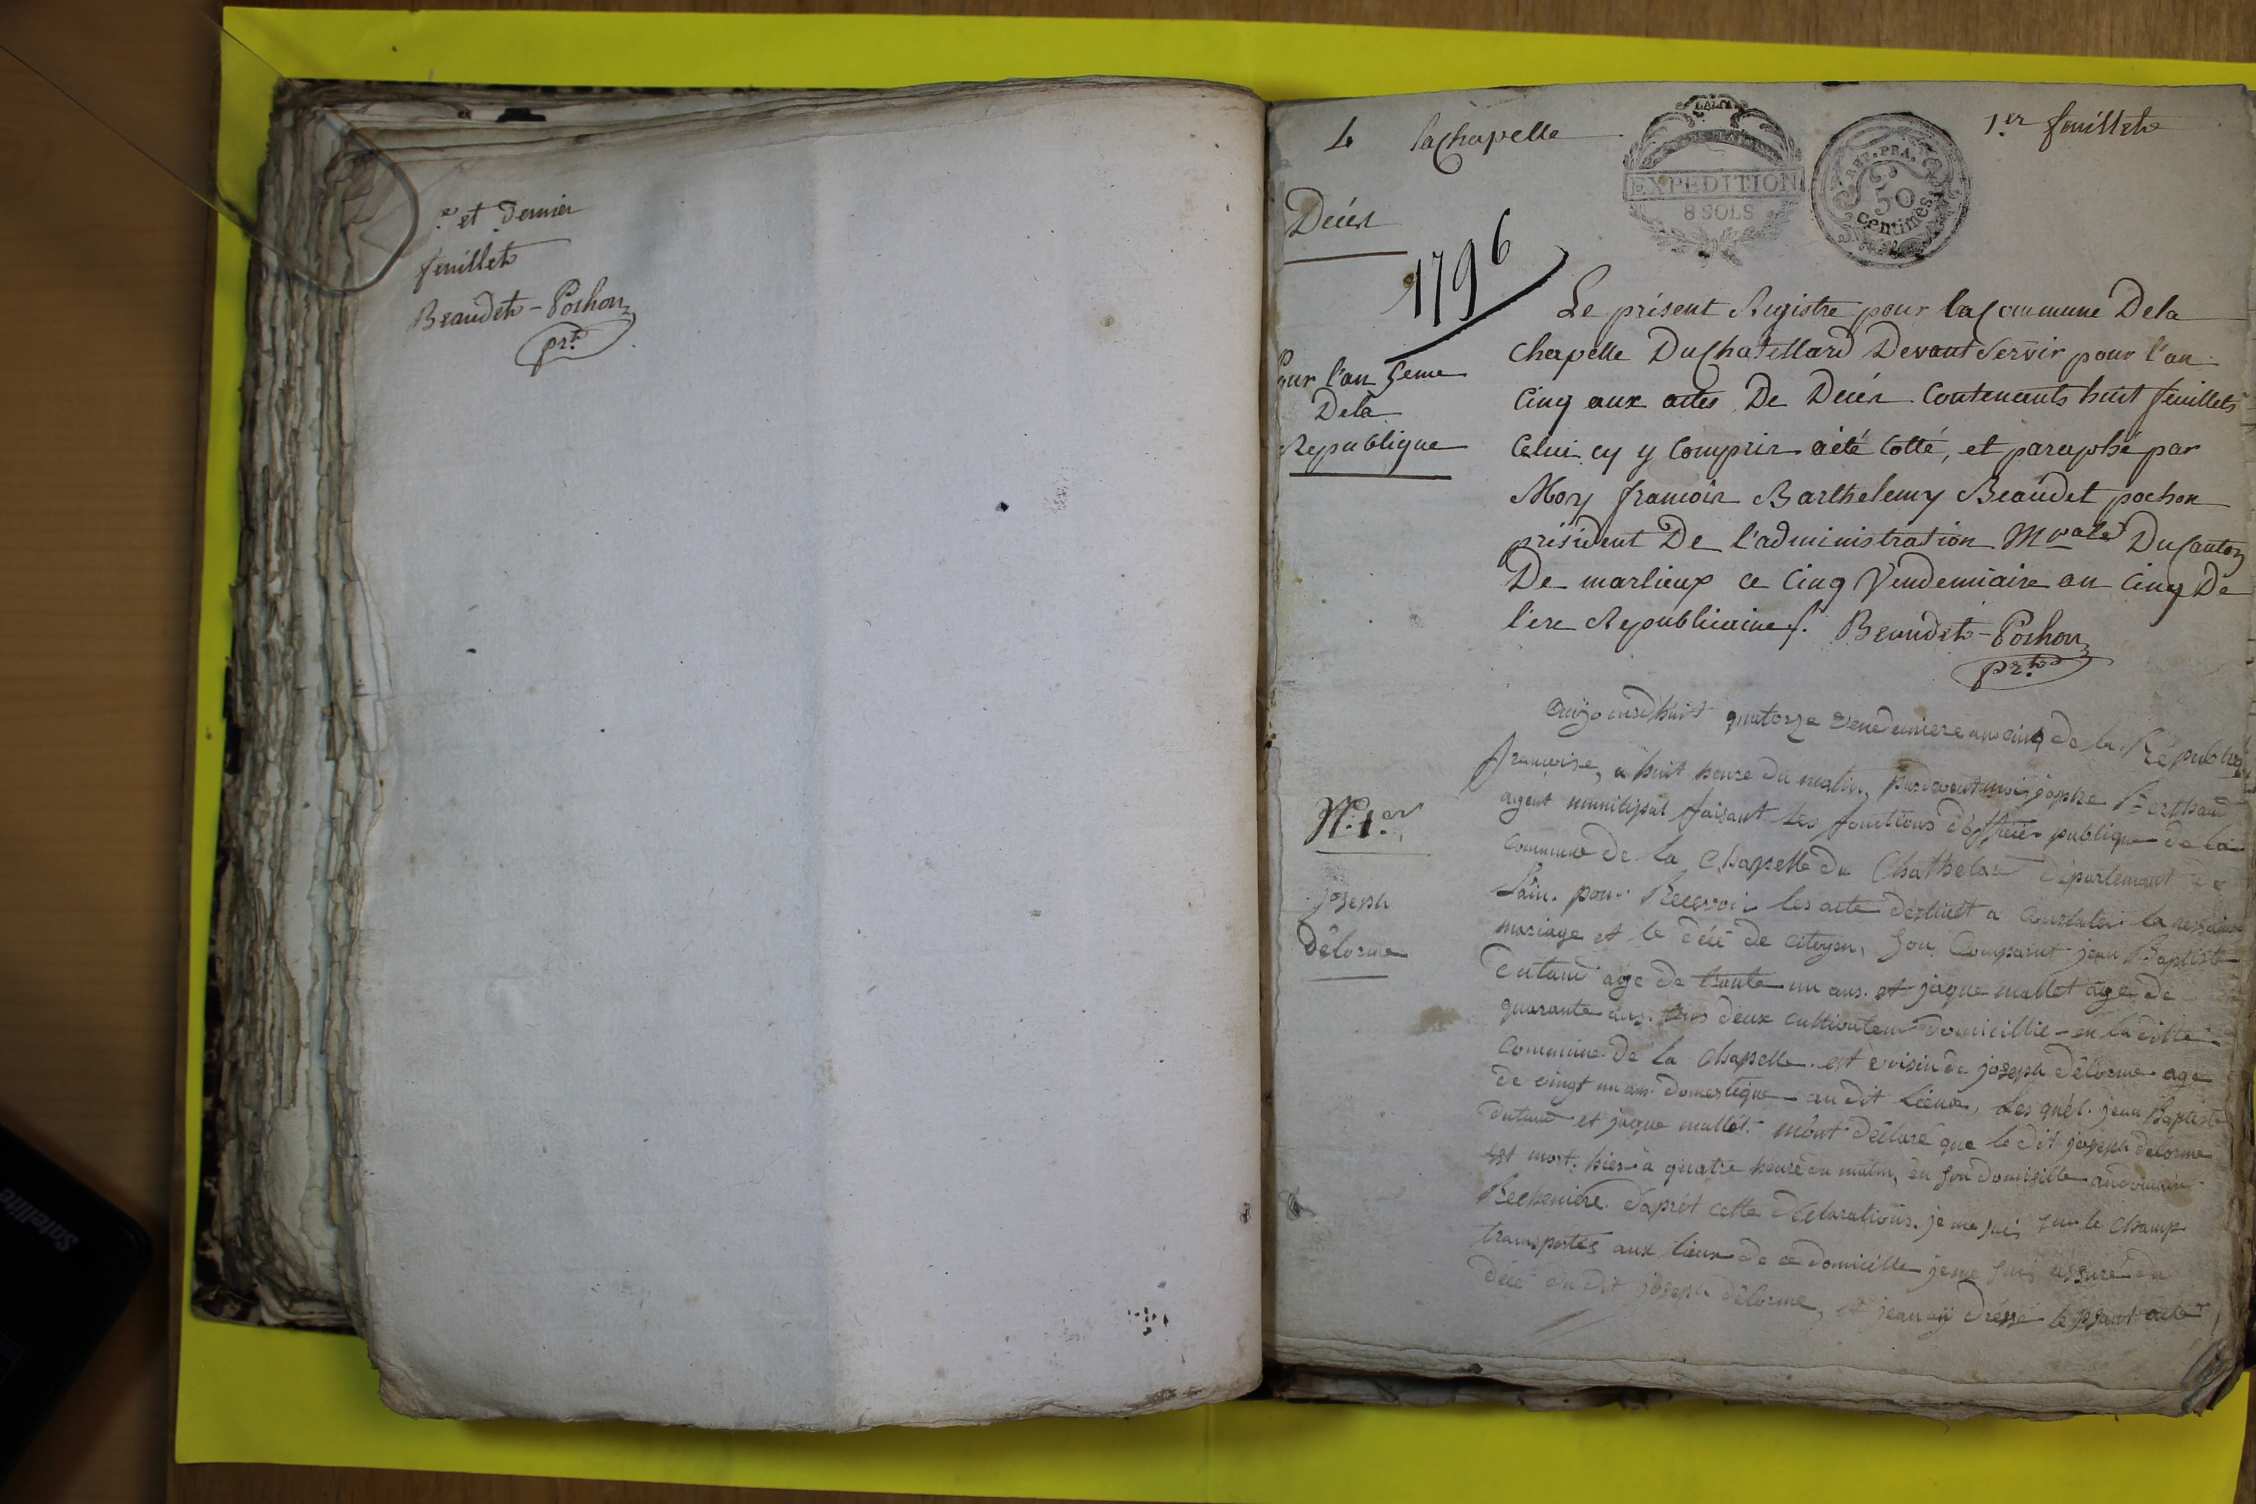 e et Dernier
feuillet
Beaudet-Pochon
prt.
L laChapelle
EXPEDITION
8 SOLS
RE.PRA.
50
centimes
1er feuillet
Décés
1796
Pour l'an 5eme
Dela
Republique
Le présent Registre pour la Commune Dela
Chapelle DuChatellard Devant Servir pour l'an
Cinq aux actes De Décés Contenants huit feuillets
Celui cy y Compris a été Cotté, et paraphé par
Moy francois Barthelemy Beaudet pochon
président De l'administration Mvale DuCanton
De marlieux ce Cinq Vendemiaire an Cinq De
l'ere Republicaine ./. Beaudet-Pochon
prt.
N.1er
joseph
Délorme
aujourdhuit quatorze vendemiere an cinq de la Républiq
françoise, a huit heure du matin, pardevant moi jophe Berthaud
agent municipal faisant les fonctions d'officier publique de la
Commune de la Chapelle du Chathelar département de
l'ain. pour Recevoir les acte destinet a Constater la nessance
mariage et le décé de citoyen, son Comparut jean Baptiste
dutane age de trante un ans. et jaque mallet age de
quarante ans. tous deux cultivateur domicillie en la ditte
Commune de la Chapelle. est voisin de joseph délorme age
de vingt un ans domestique au dit Lieux, Les quel. jean Baptiste
dutane et jaque mallet. m'ont déclaré que le dit joseph délorme
est mort. hier a quatre heure du matin, en son domicille au domaine
Bechenière. daprèt cette déclarations. je me sui sur le champ
transportés aux lieux de ce domicille je me sui assuré du
décé du dit joseph délorme, et jean aÿ dréssé le présant acte